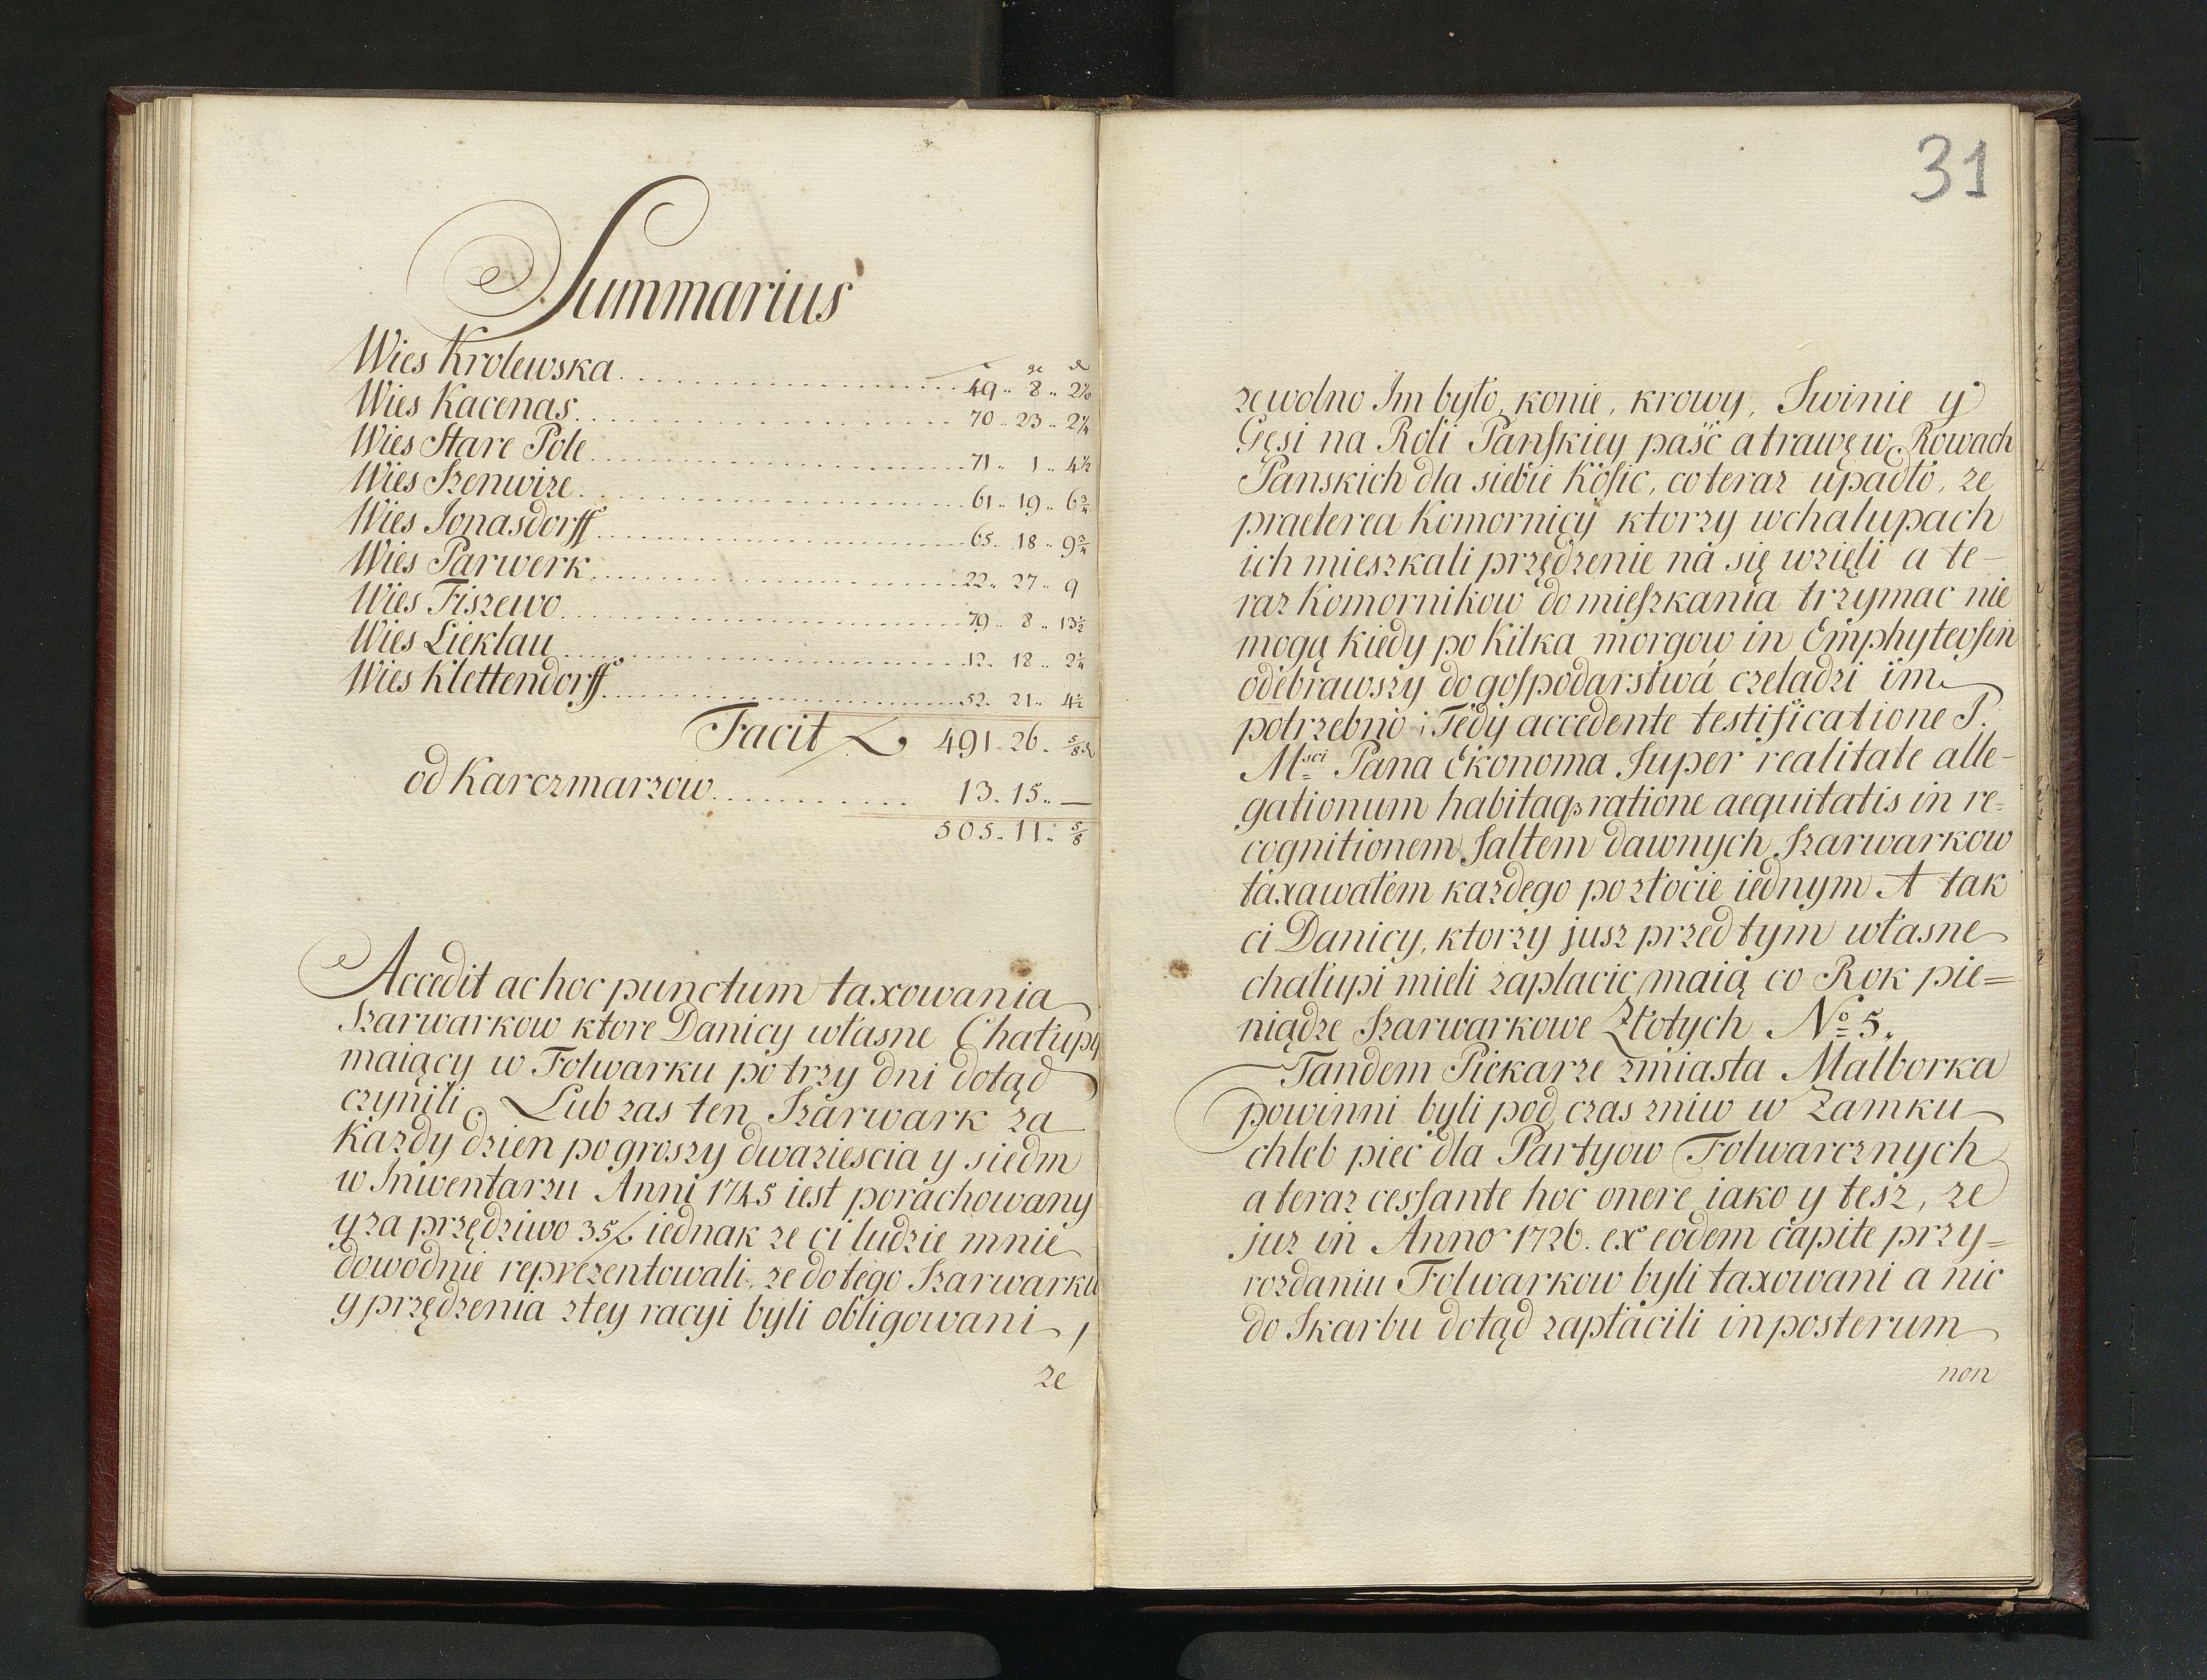 Summarius
gr d
Wies Krolewska 49 .. 8 .. 2 1/8
Wies Kacenas 70 .. 23 .. 2 1/4
Wies Stare Pole 71 .. 1 .. 4 1/2
Wies Szenwize 61 .. 19 .. 6 3/4
Wies Jonasdorff 65 .. 18 .. 9 3/4
Wies Parwerk 22 .. 27 .. 9
Wies Fiszewo 79 .. 8 .. 13 1/2
Wies Lieklau 12 .. 18 .. 2 1/4
Wies Klettendorff 52 .. 21 .. 4 1/2
Facit 491 . 26 . 5/8 d
od Karczmarzow 13 . 15 .. —
505 . 11 . 5/8
Accedit ac hoc punctum taxowania
Szarwarkow ktore Danicy własne Chałupy
maiący w Folwarku po trzy dni dotąd
czynili. Lub zas ten Szarwark za
Kazdy dzien po groszy dwaziescia y siedm
w Inwentarzu Anni 1745 iest porachowany
y za przędziwo 35 iednak ze ci ludzie mnie
dowodnie reprezentowali, ze do tego Szarwarku
y przędzenia z tey racyi byli obligowani,
ze
31
ze wolno Im było, konie, krowy, Swinie y
Gęsi na Roli Panskiey paść a trawę w Rowach
Panskich dla siebie Kosic, co teraz upadło, ze
praeterea Komornicy ktorzy w chalupach
ich mieszkali przędzenie na się wzięli a te-
raz Komornikow do mieszkania trzymac nie
mogą kiedy po kilka morgow in Emphyteosin
odebrawszy do gospodarstwa czeladzi im
potrzebno; Tedy accedente testificatione J.
Msci Pana Ekonoma super realitate alle-
gationum habitaq; ratione aequitatis in re=
cognitionem saltem dawnych Szarwarkow
taxawałem kazdego po złocie iednym A tak
ci Danicy, ktorzy jusz przed tym własne
chałupi mieli zaplacic maią co Rok pie=
niądze Szarwarkowe Złotych No 5.
Tandem Piekarze z miasta Malborka
powinni byli pod czas zniw w Zamku
chleb piec dla Partyow Folwarcznych
a teraz cessante hoc onere iako y tesz, ze
juz in Anno 1726. ex eodem capite przy=
rozdaniu Folwarkow byli taxowani a nic
do Skarbu dotąd zapłacili in posterum
non